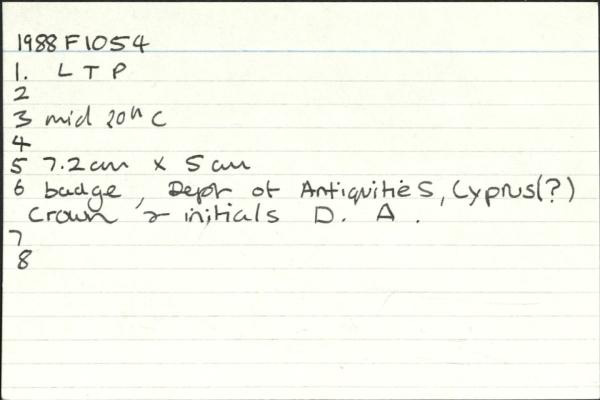 1988 F1054
1. L T P
2
3 mid 20th C
4
5 7.2cm x 5cm
6 badge, Dept of Antiquities, Cyprus(?)
Crown & initials D. A.
7
8